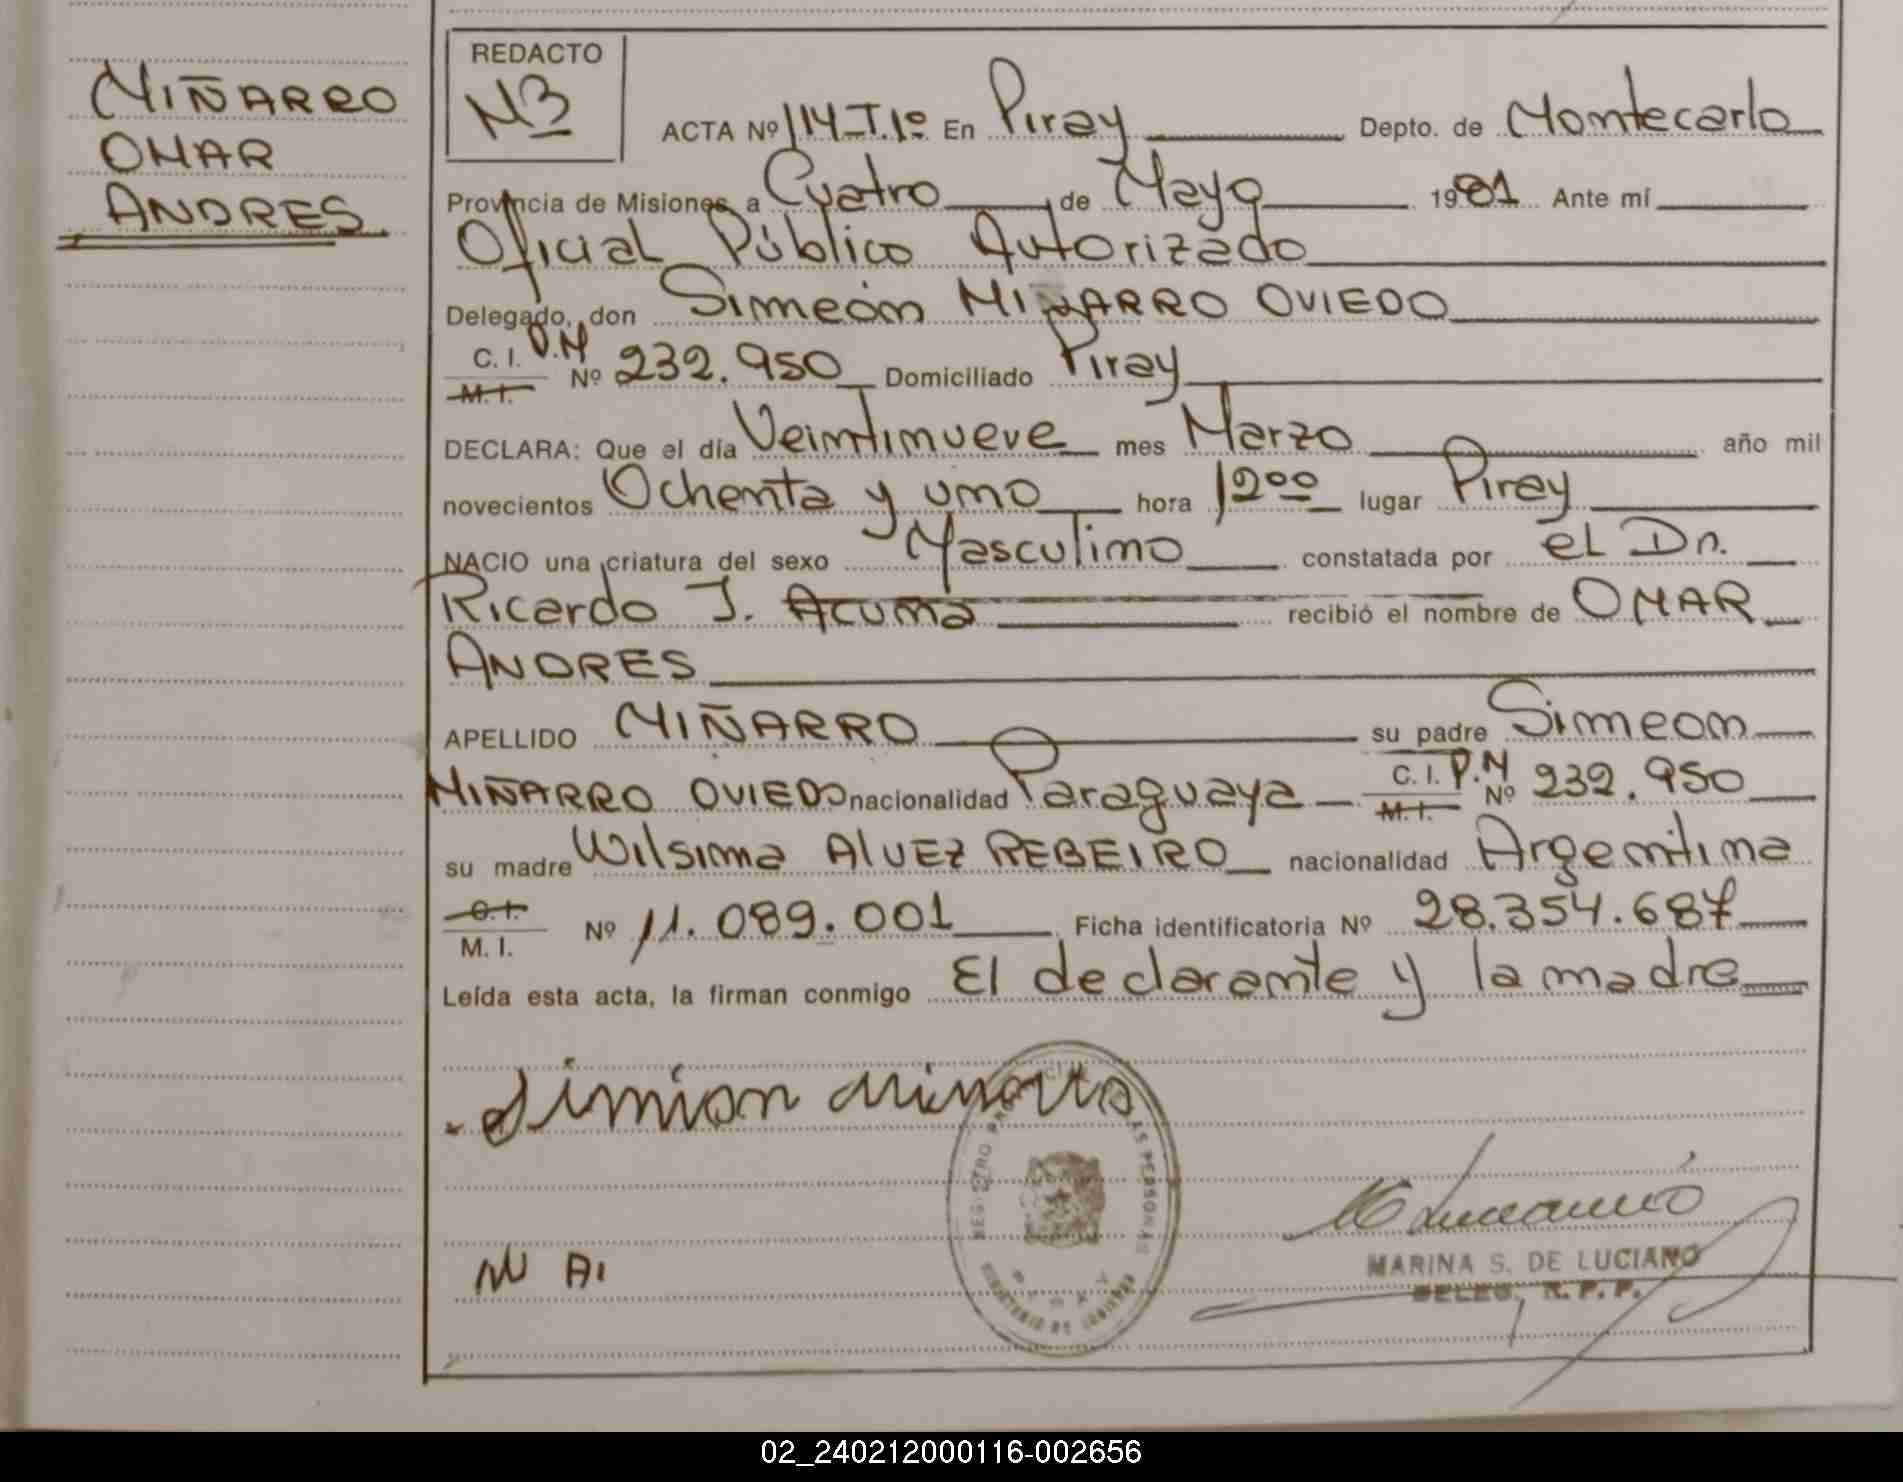 MIÑARRO
OMAR
ANDRES
REDACTO
ACTA Nº 114-T.1º En Piray Depto. de Montecarlo
Provincia de Misiones, a Cuatro de Mayo 1981 Ante mí
Oficial Público Autorizado
Delegado, don Simeón MIÑARRO OVIEDO
C. I. D.N
M. I. Nº 232.950 Domiciliado Piray
DECLARA: Que el día Veintinueve mes Marzo año mil
novecientos Ochenta y uno hora 12 00 lugar Piray
NACIO una criatura del sexo Masculino constatada por el Dr.
Ricardo J. Acuña recibió el nombre de OMAR
ANDRES
APELLIDO MIÑARRO su padre Simeon
MIÑARRO OVIEDO nacionalidad Paraguaya C. I. D.N M. I. Nº 232.950
su madre Wilsima AlVEZ REBEIRO nacionalidad Argentina
C. I.
M. I. Nº 11.089.001 Ficha identificatoria Nº 28.354.687
Leída esta acta, la firman conmigo El declarante y la madre
Simion Minarro
REGISTRO PERSONAS
PIRAY
MINISTERIO DE
MARINA S. DE LUCIANO
DELEG. R. P. P.
02_240212000116-002656